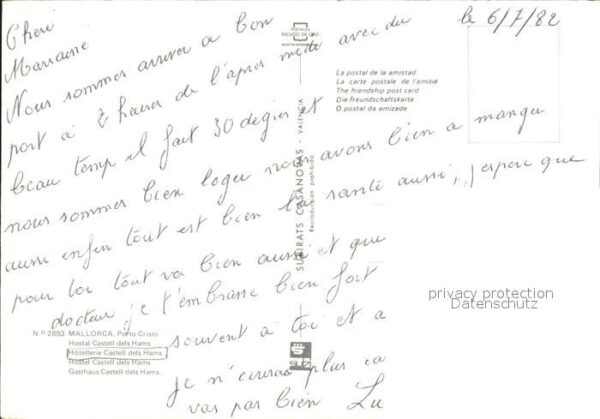 le 6/7/82
Cheri
Marraine
Nous sommer arriver a bon
port à 2 heures de l'apres midi avec du
beau temp il fait 30 degrer et
nous sommer bien loger nous avons bien a manger
aussi enfin tout est bien la santé aussi, j'espere que
pour toi tout va bien aussi et que
docteur je t'embrasse bien fort
souvent à toi et a
je n'ecurai plus ca
vas pas bien Lu
POSTALES
ESCUDO DE ORO
La postal de la amistad
La carte postale de l'amitié
The friendship post card
Die Freundschaftskarte
O postal da amizade
SUBIRATS CASANOVAS - VALENCIA
Reproducción prohibida
N.º 2893 MALLORCA, Porto Cristo
Hostal Castell dels Hams
Hôtellerie Castell dels Hams
Hostel Castell dels Hams
Gasthaus Castell dels Hams
privacy protection
Datenschutz